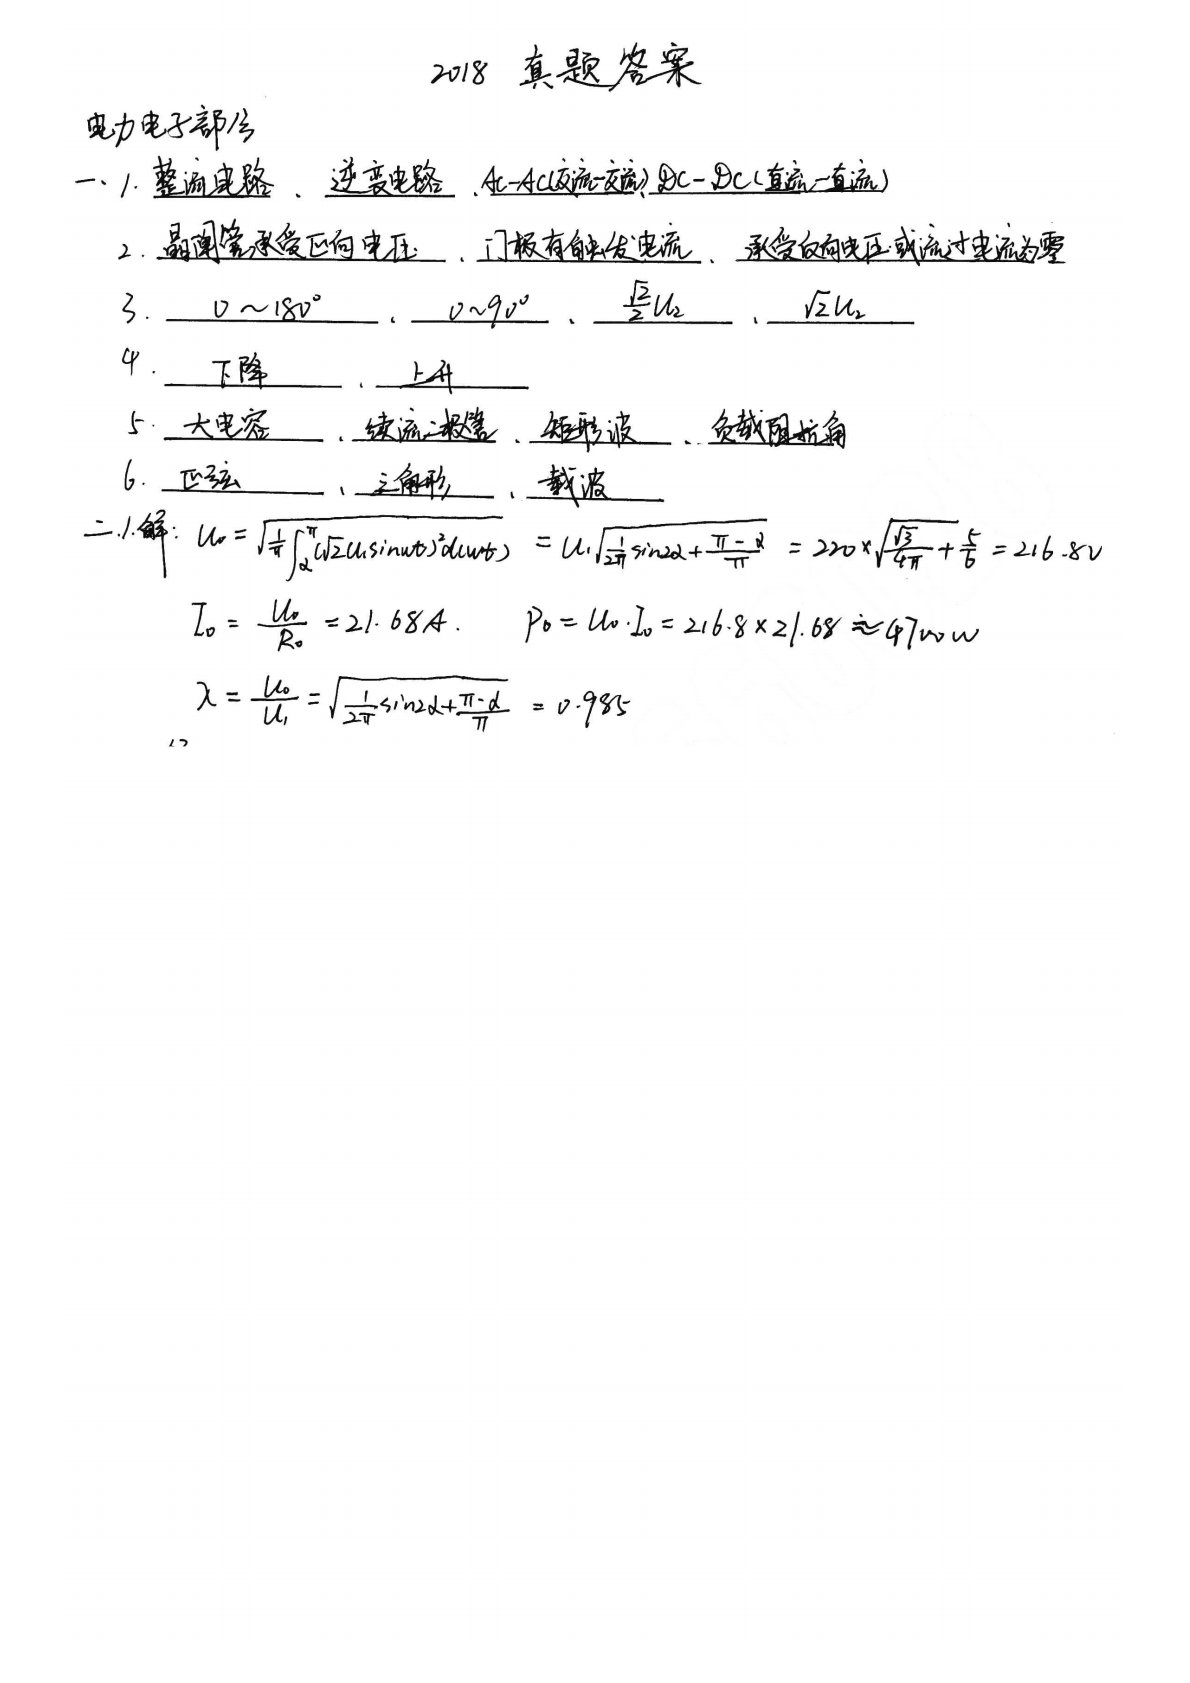 2018 真题答案
电力电子部分
一、1. 整流电路 、 逆变电路 、AC-AC(交流-交流) DC-DC(直流-直流)
2. 晶闸管承受正向电压 、 门极有触发电流 、 承受反向电压或流过电流为零
3. 0～180° 、 0～90° 、 √2/2 U₂ 、 √2U₂
4. 下降 、 上升
5. 大电容 、 续流二极管 、 矩形波 、 负载阻抗角
6. 正弦 、 三角形 、 载波
二.1.解: U₀ = √(1/π ∫_α^π (√2U₁sinωt)²d(ωt)) = U₁√(1/2π sin2α + (π-α)/π) = 220×√(√3/4π + 5/6) = 216.8V
I₀ = U₀/R₀ = 21.68A. P₀ = U₀·I₀ = 216.8×21.68 ≈ 4700W
λ = U₀/U₁ = √(1/2π sin2α + (π-α)/π) = 0.985